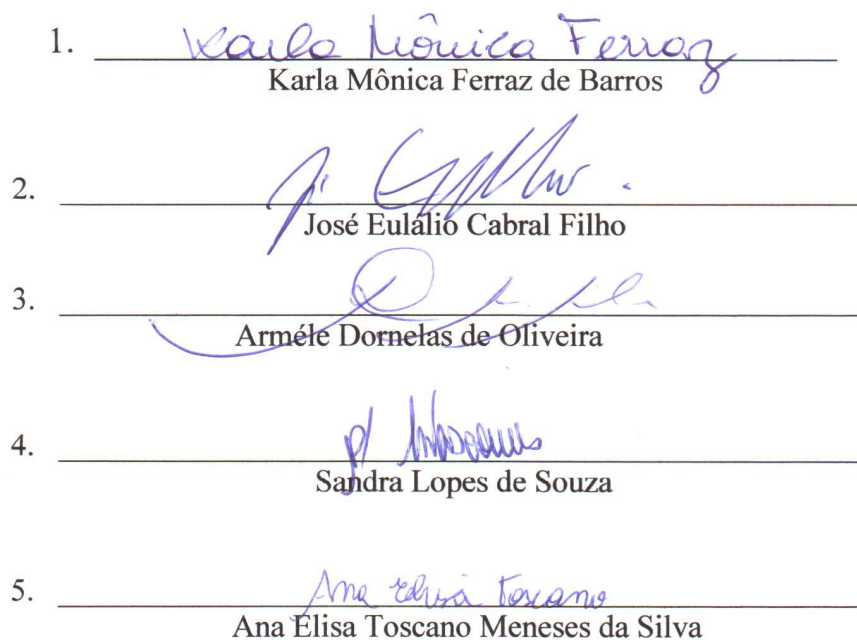 1. Karla Mônica Ferraz
Karla Mônica Ferraz de Barros
2.
José Eulálio Cabral Filho
3.
Arméle Dornelas de Oliveira
4. p/
Sandra Lopes de Souza
5. Ana Elisa Toscano
Ana Elisa Toscano Meneses da Silva